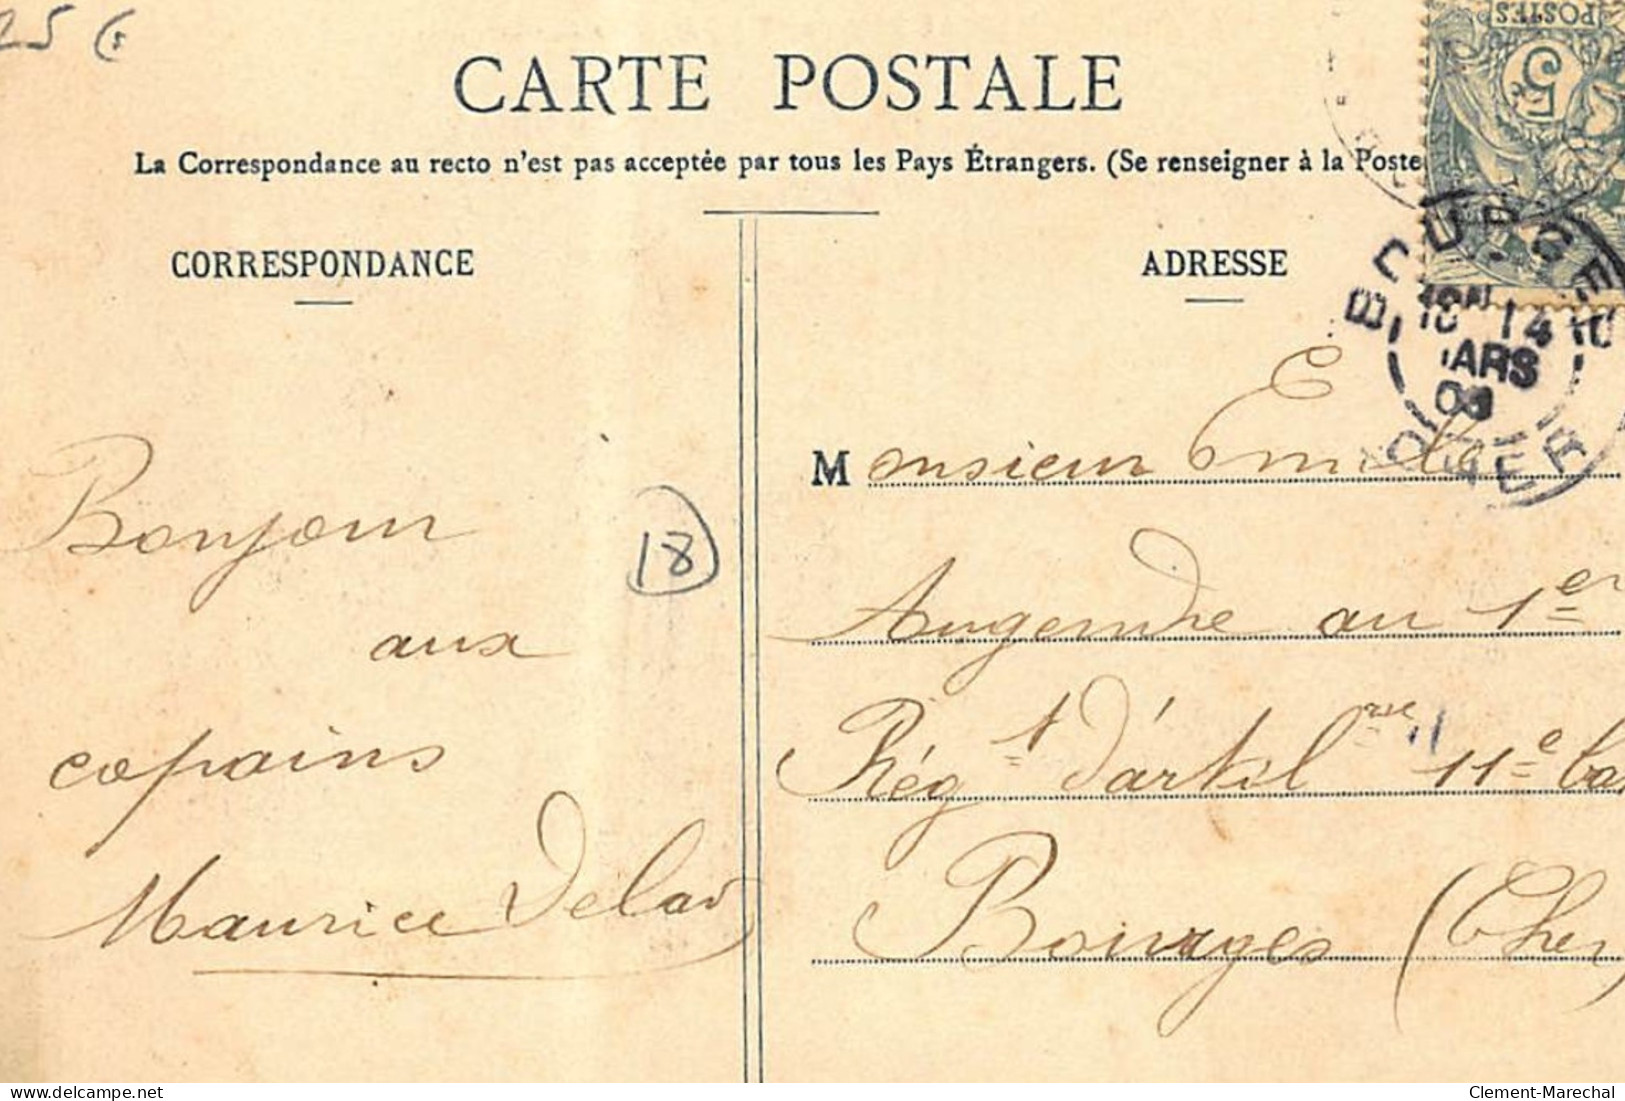 25 €
CARTE POSTALE
La Correspondance au recto n'est pas acceptée par tous les Pays Étrangers. (Se renseigner à la Poste
CORRESPONDANCE
ADRESSE
POSTES
5
BOURGES
14
ARS
CHER
Bonjour
aux
copains
Maurice
18
Monsieur Emile
Augendre au 1er
Régt d'artilrie 11e bat
Bourges (Cher)
delcampe.net
Clement-Marechal